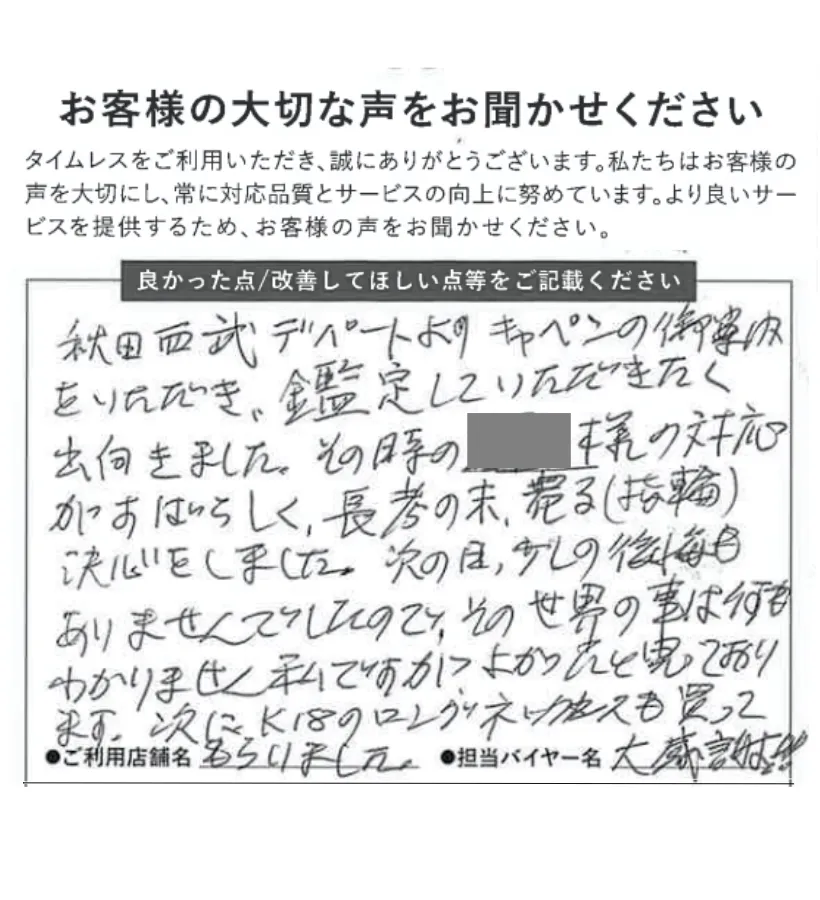 お客様の大切な声をお聞かせください
タイムレスをご利用いただき、誠にありがとうございます。私たちはお客様の
声を大切にし、常に対応品質とサービスの向上に努めています。より良いサー
ビスを提供するため、お客様の声をお聞かせください。
良かった点/改善してほしい点等をご記載ください
秋田西武デパートよりキャペンの御葉
をいただき、鑑定していただきたく
出向きました。その時の 様の対応
がすばらしく、長考の末、売る(指輪)
決心をしました。次の日、少しの後悔も
ありませんでしたので、その世界の事は何も
わかりません私ですがよかったと思っており
ます。次にK18のロングネックレスも買って
●ご利用店舗名 もらいました。 ●担当バイヤー名 大感謝